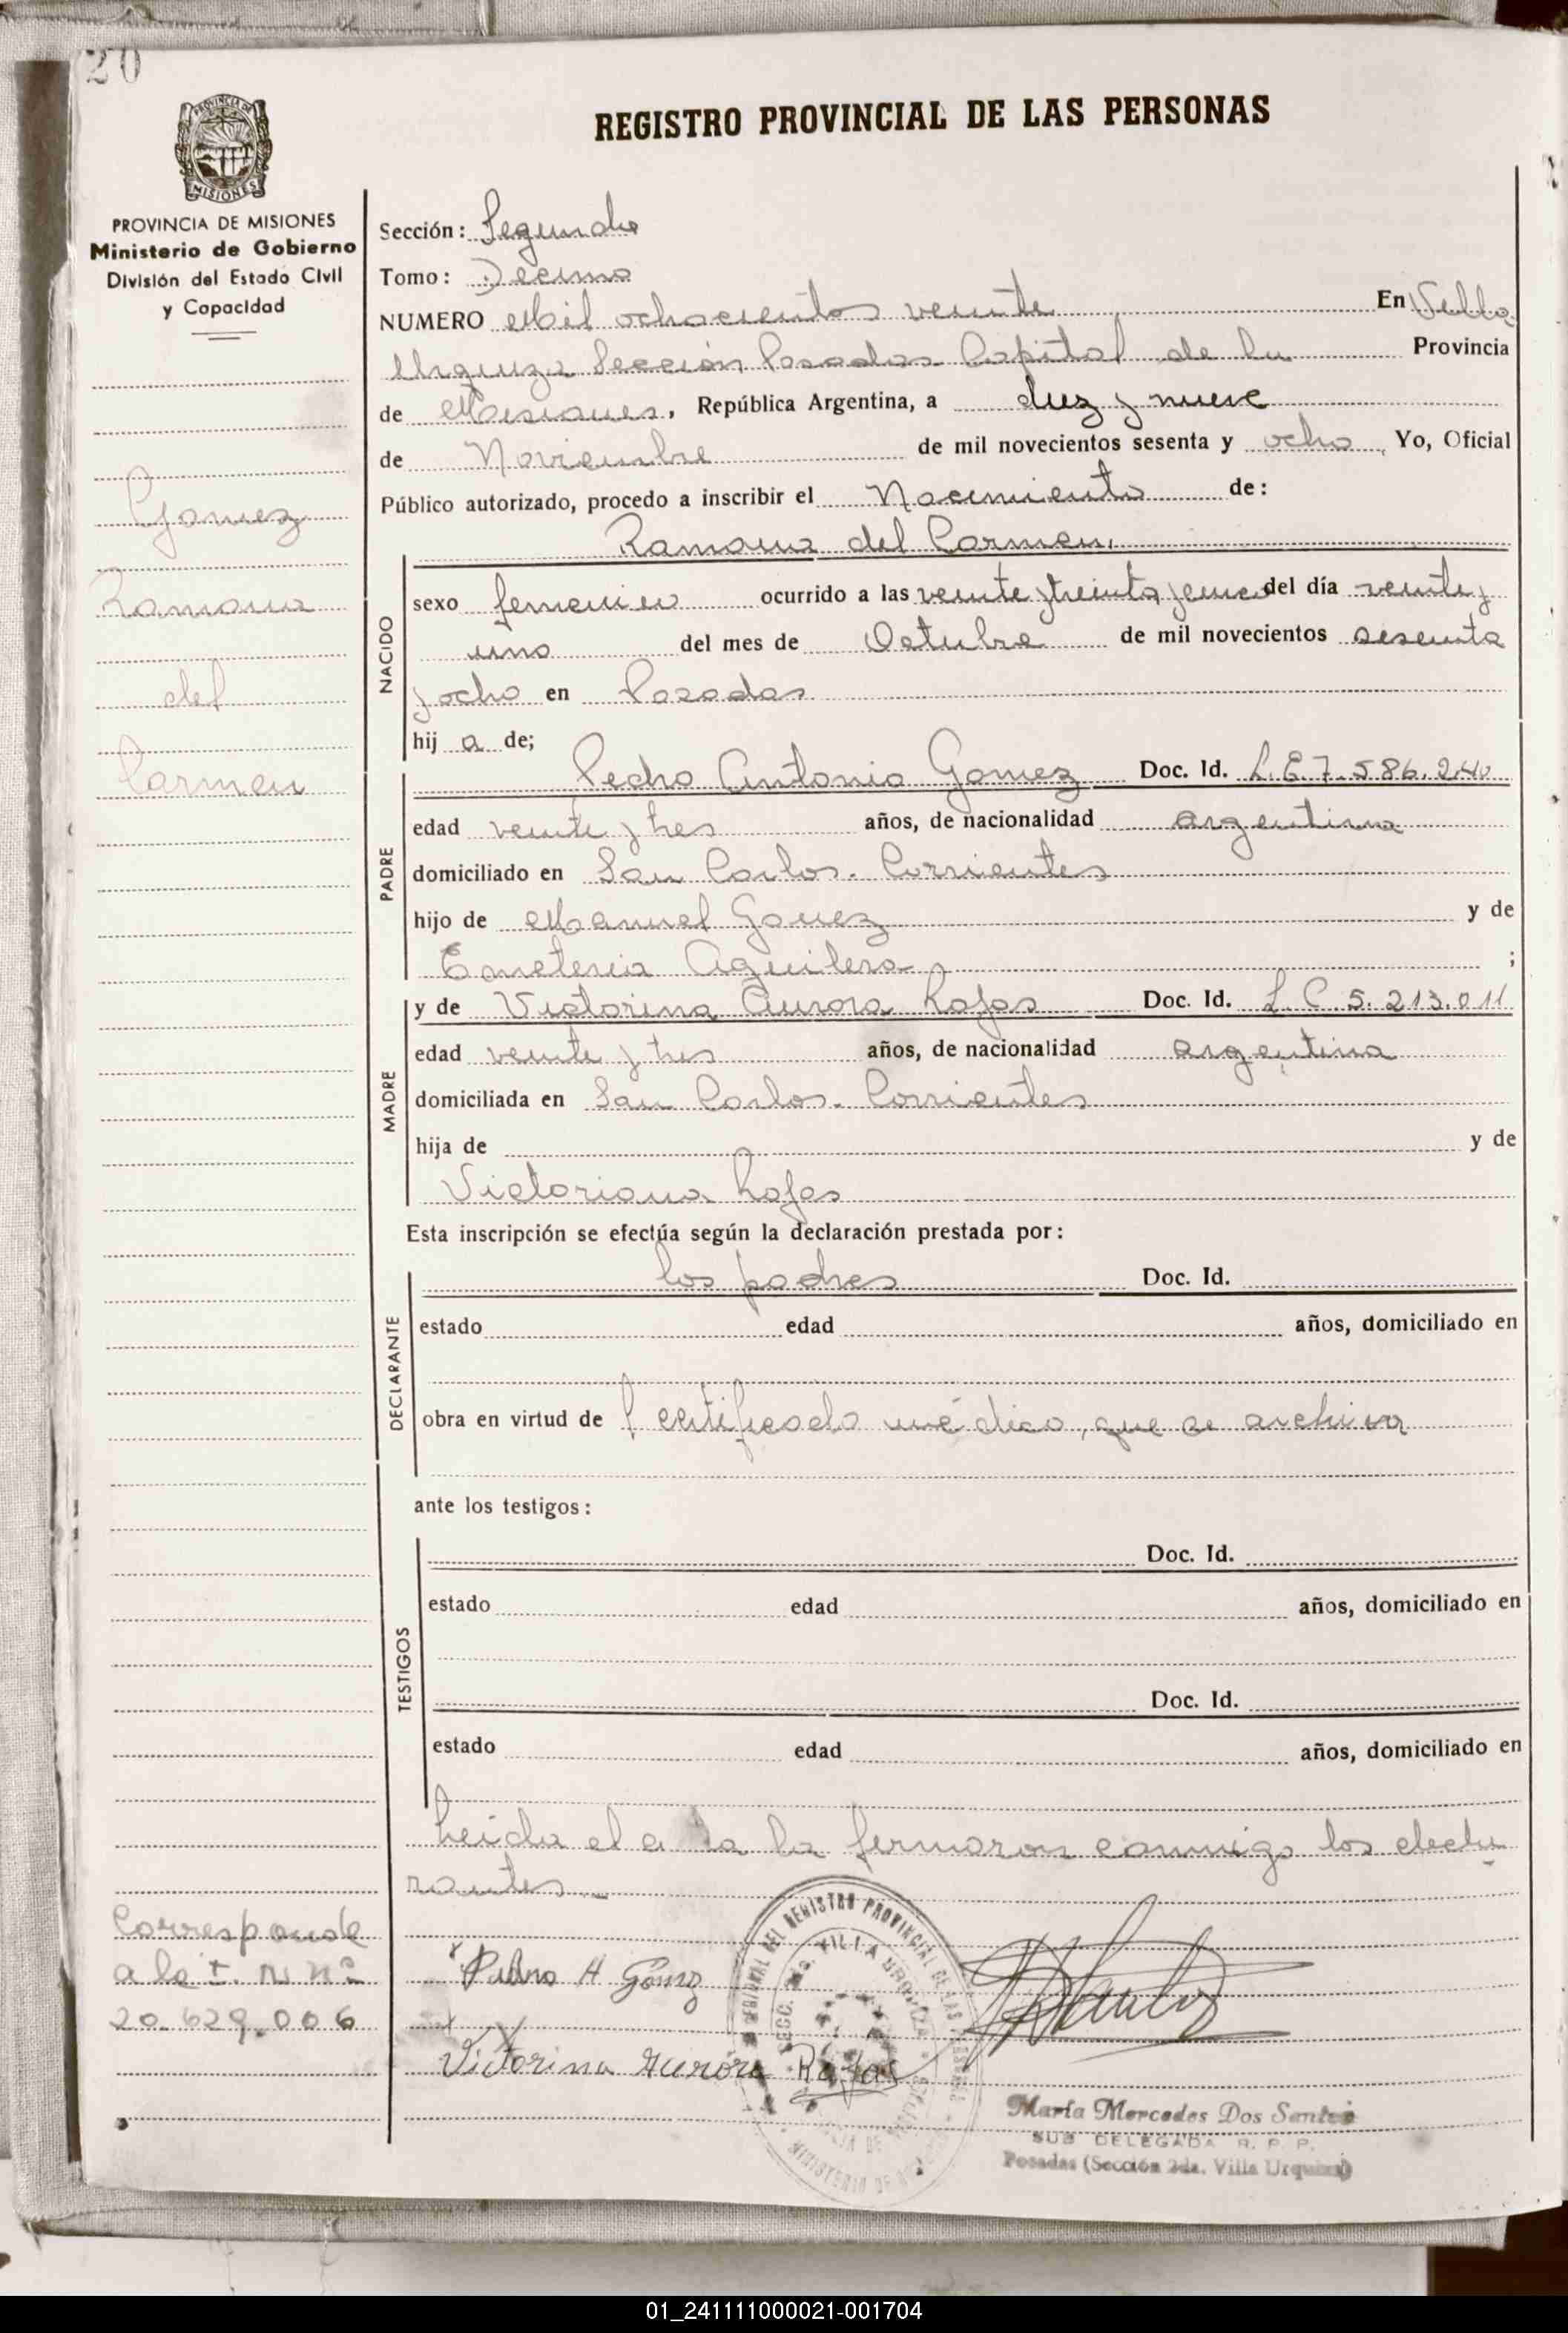 20
REGISTRO PROVINCIAL DE LAS PERSONAS
PROVINCIA DE MISIONES
Ministerio de Gobierno
División del Estado Civil
y Capacidad
Gomez
Ramona
del
Carmen
Corresponde
a la I. N. Nº
20.629.006
Sección: Segunda
Tomo: Decimo
NUMERO Mil ochocientos veinte En Villa
Urquiza Sección Posadas Capital de la Provincia
de Misiones, República Argentina, a diez y nueve
de Noviembre de mil novecientos sesenta y ocho, Yo, Oficial
Público autorizado, procedo a inscribir el Nacimiento de:
Ramona del Carmen
NACIDO
sexo femenino ocurrido a las veinte y treinta y cinco del día veinte y
uno del mes de Octubre de mil novecientos sesenta
y ocho en Posadas
hij a de;
PADRE
Pedro Antonio Gomez Doc. Id. L.E.7.586.240
edad veinte y tres años, de nacionalidad argentina
domiciliado en San Carlos - Corrientes
hijo de Manuel Gomez y de
Emeteria Aguilera ;
MADRE
y de Victorina Aurora Rojas Doc. Id. L C 5.213.011
edad veinte y tres años, de nacionalidad argentina
domiciliada en San Carlos - Corrientes
hija de y de
Victoriana Rojas
Esta inscripción se efectúa según la declaración prestada por:
DECLARANTE
los padres Doc. Id.
estado edad años, domiciliado en
obra en virtud de certificado médico, que se archiva
ante los testigos:
TESTIGOS
Doc. Id.
estado edad años, domiciliado en
Doc. Id.
estado edad años, domiciliado en
Leida el a ta la firmaron conmigo los decla
rantes.-
Pedro A Gómez
Victorina Aurora Rojas
REGISTRO PROVINCIAL DE LAS
SECC. 2da. VILLA URQUIZA
María Mercedes Dos Santos
SUB DELEGADA R. P. P.
Posadas (Sección 2da. Villa Urquiza)
01_241111000021-001704